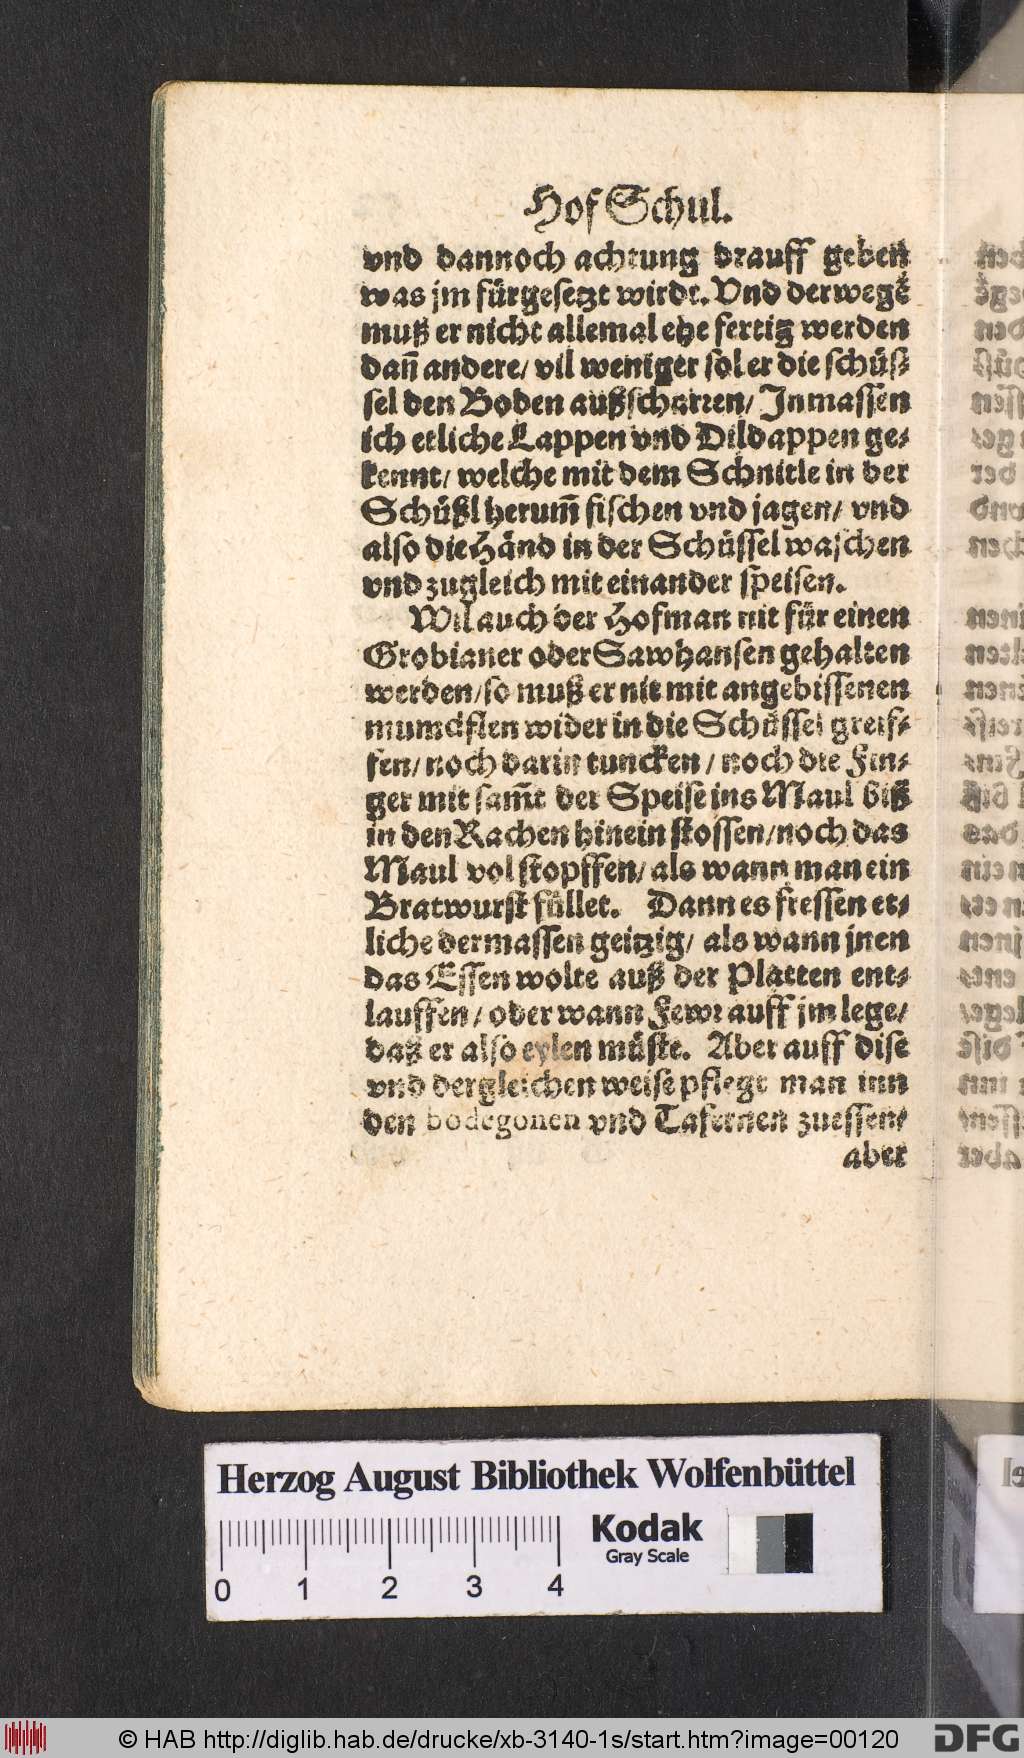 Hof Schul.
vnd dannoch achtung drauff geben
was jm fürgesetzt wirdt. Vnd derwegē
muß er nicht allemal ehe fertig werden
dañ andere/ vil weniger sol er die schüs⸗
sel den Boden außscharren/ Inmassen
ich etliche Lappen vnd Dildappen ge⸗
kennt/ welche mit dem Schnitle in der
Schüßl herum̃ fischen vnd jagen/ vnd
also die Händ in der Schüssel waschen
vnd zugleich mit einander speisen.
Wil auch der Hofman nit für einen
Grobianer oder Sawhansen gehalten
werden/ so muß er nit mit angebissenen
mumpflen wider in die Schüssel greif⸗
fen/ noch darin tuncken/ noch die Fin⸗
ger mit sam̃t der Speise ins Maul biß
in den Rachen hinein stossen/ noch das
Maul vol stopffen/ als wann man ein
Bratwurst füllet. Dann es fressen et⸗
liche dermassen geitzig/ als wann jnen
das Essen wolte auß der Platten ent⸗
lauffen/ oder wann Fewr auff jm lege/
daß er also eylen müste. Aber auff dise
vnd dergleichen weise pflegt man inn
den bodegonen vnd Tafernen zuessen/
aber
Herzog August Bibliothek Wolfenbüttel
Kodak
Gray Scale
0 1 2 3 4
© HAB http://diglib.hab.de/drucke/xb-3140-1s/start.htm?image=00120
DFG